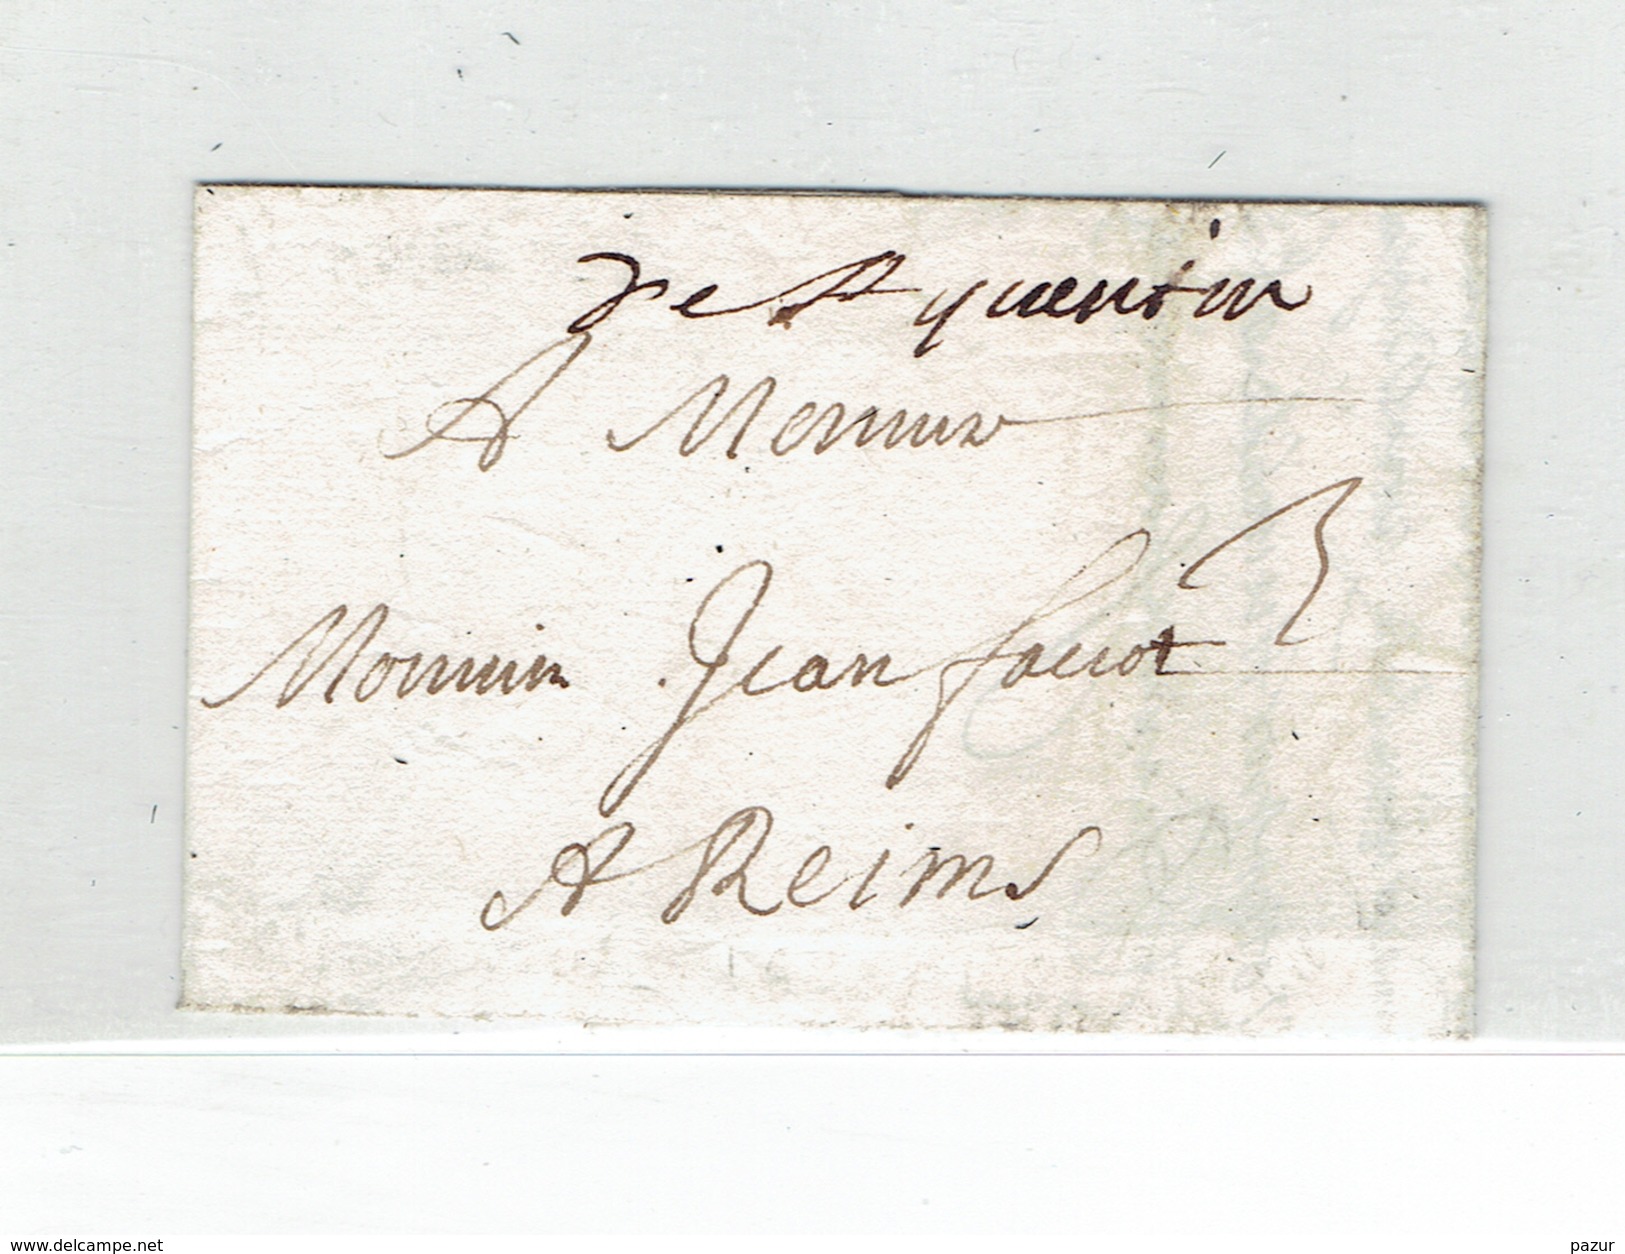 de St quentin
A Monsieur
Monsieur Jean
A Reims
www.delcampe.net
pazur